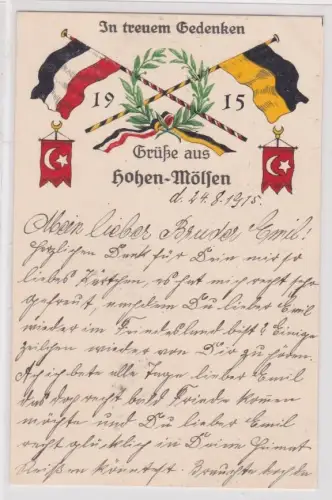 In treuem Gedenken
1915
Grüße aus
Hohen-Mölsen
d. 24.8.1915.
Mein lieber Bruder Emil!
Herzlichen Dank für Dein mir so
liebes Kärtchen, es hat mich recht sehr
gefreut, nachdem Du lieber Emil
wieder im Feindesland bist? Einige
zeilchen wieder von Dir zu hören.
Ach ich bete alle Tage lieber Emil
das doch recht bald Friede komen
möchte und Du lieber Emil
recht glücklich in Deine Heimat
könntest. Brauchte